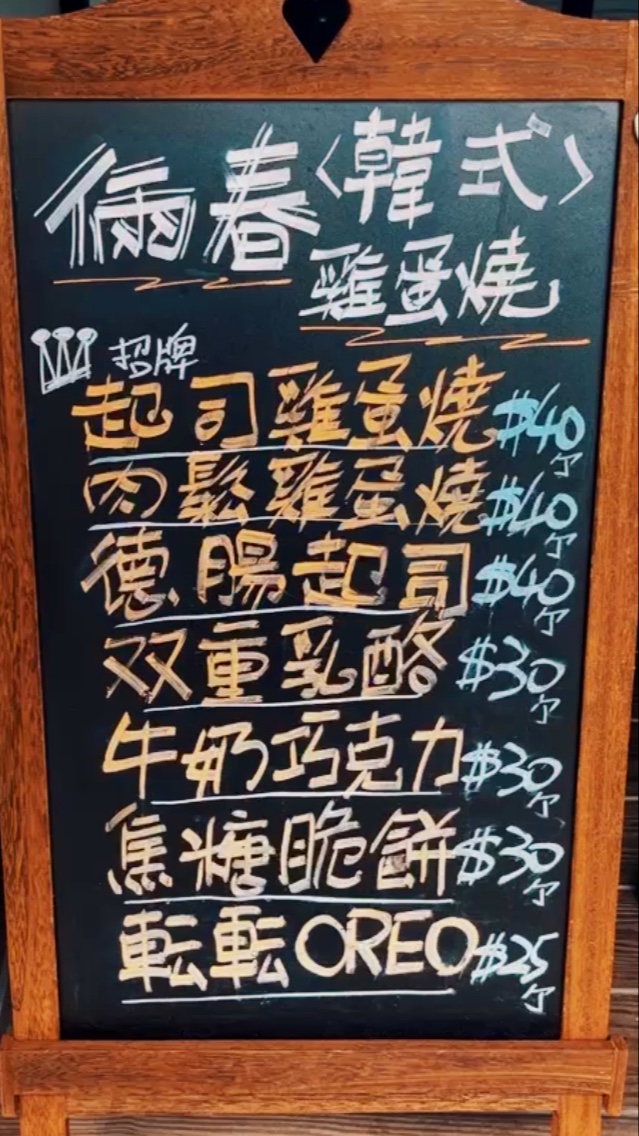 倆春〈韓式〉
雞蛋燒
招牌
起司雞蛋燒 $40
肉鬆雞蛋燒 $40
德腸起司 $40
双重乳酪 $30
牛奶巧克力 $30
焦糖脆餅 $30
転転OREO $25